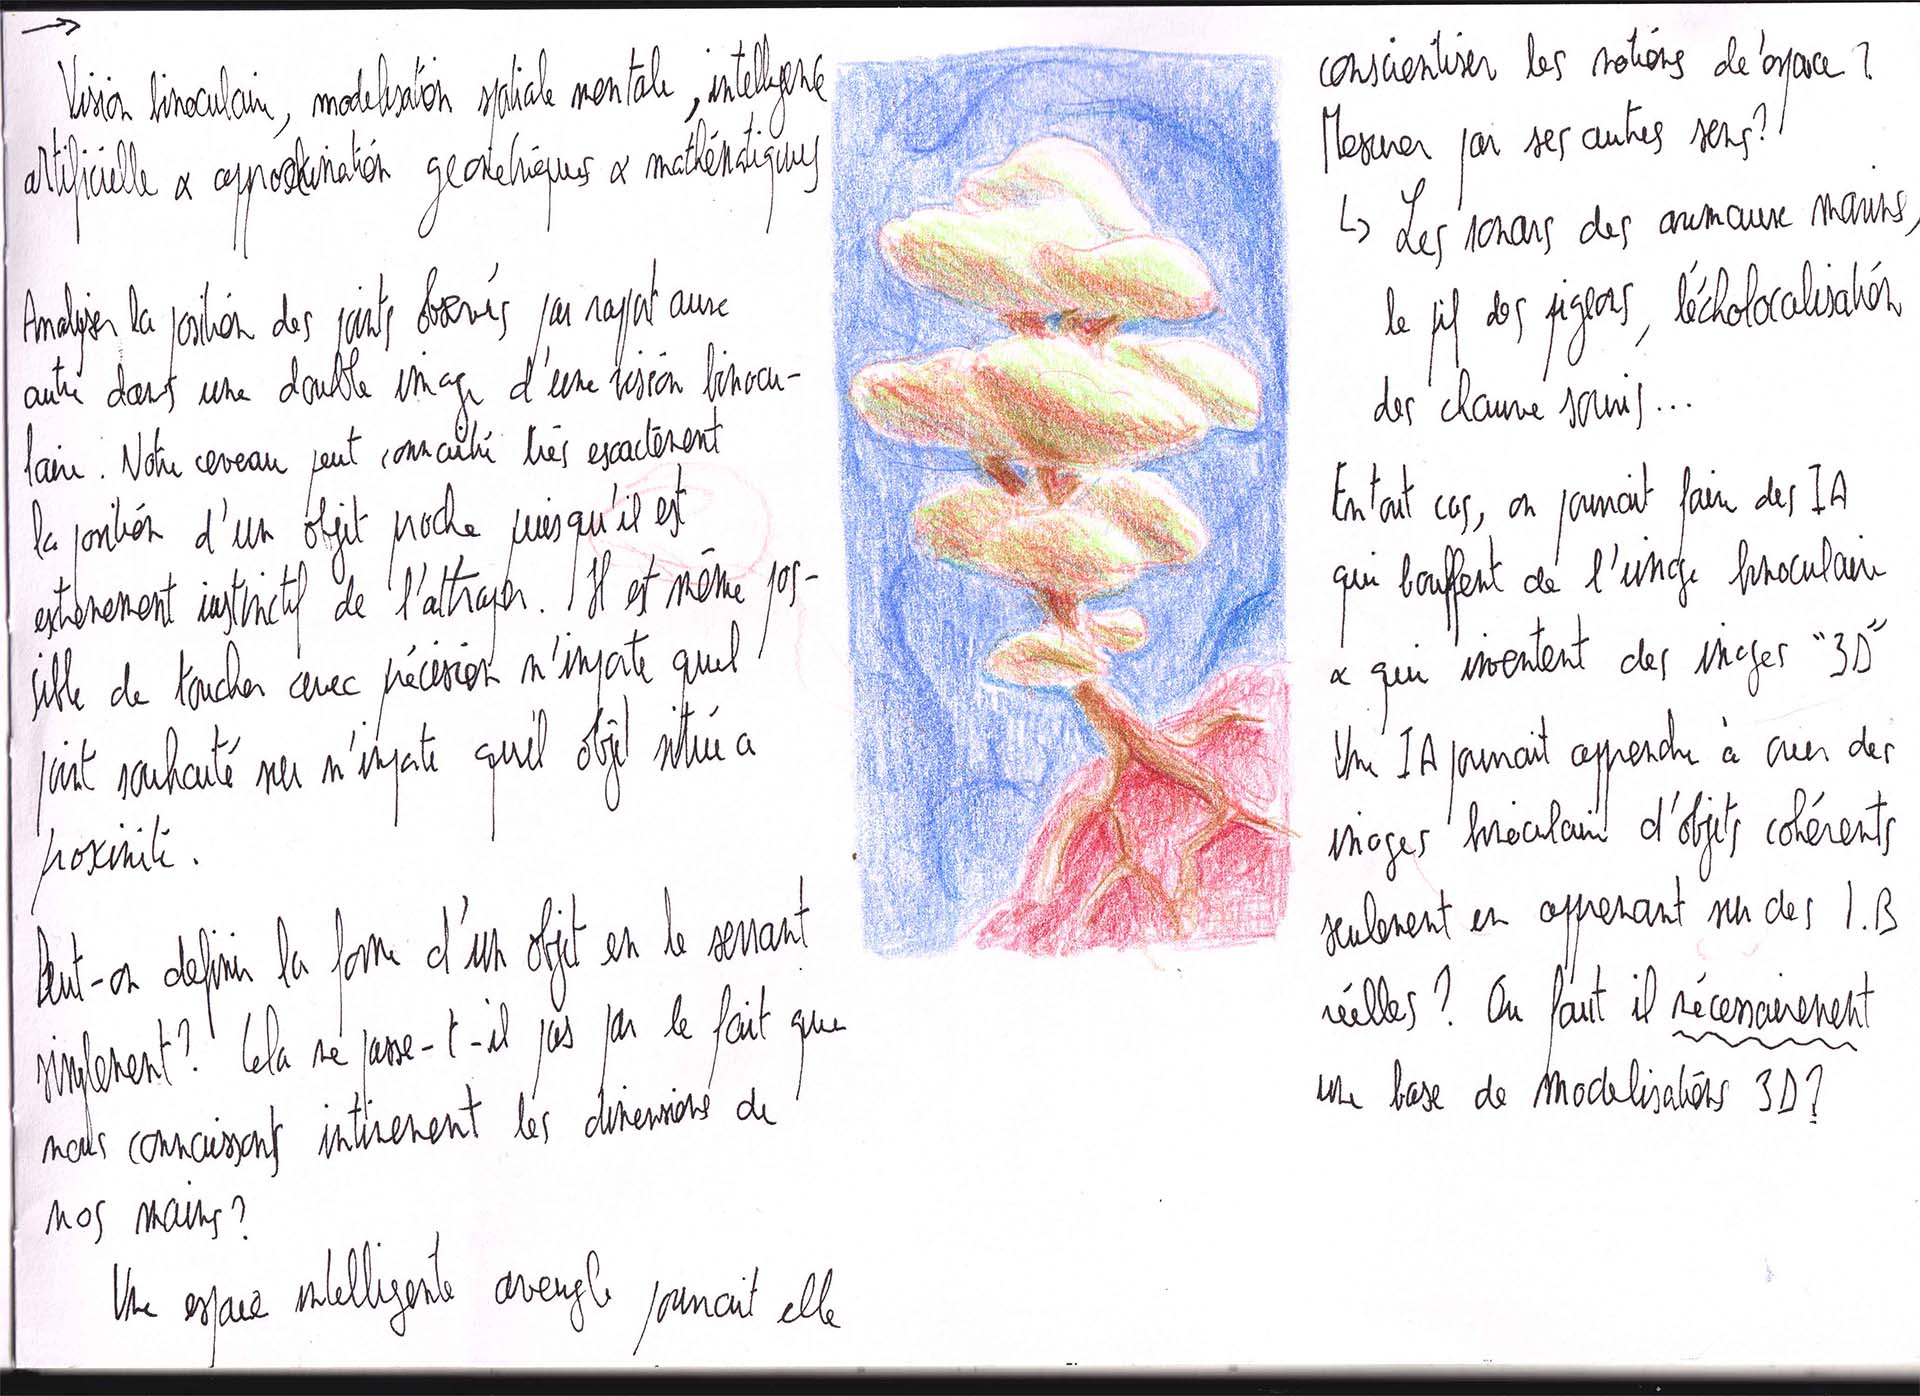 Vision binoculaire, modelisation spatiale mentale, intelligence
artificielle & approximation geometriques & mathématiques
Analyser la position des points observés par rapport aux
autre dans une double image d'une vision binocu-
laire. Notre cerveau peut connaitre très exactement
la position d'un objet proche puisqu'il est
extrêmement instinctif de l'attraper. Il est même pos-
sible de toucher avec précision n'importe quel
point souhaité sur n'importe quel objet située a
proximité.
Peut-on definir la forme d'un objet en le serrant
simplement? Cela ne passe-t-il pas par le fait que
nous connaissons intimement les dimensions de
nos mains?
Une espace intelligente aveugle pourrait elle
conscientiser les notions de l'espace?
Mesurer par ses autres sens?
↳ Les sonars des animaux marins,
le pif des pigeons, l'écholocalisation
des chauve souris...
En tout cas, on pourrait faire des IA
qui bouffent de l'image binoculaire
& qui inventent des images "3D"
Une IA pourrait apprendre à creer des
images binoculaire d'objets cohérents
seulement en apprenant sur des I.B
réelles? Ou faut il nécessairement
une base de modelisations 3D?